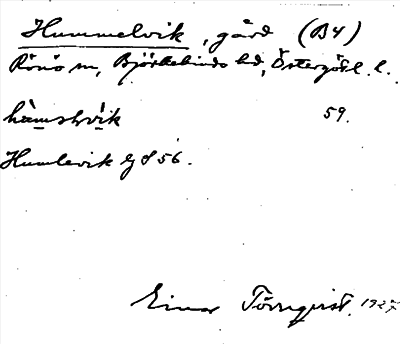 Hummelvik, gård (B4)
Rönö sn, Björkekinds hd, Östergötl. l.
59.
Humlevik GS 56.
Einar Törnqvist. 1927